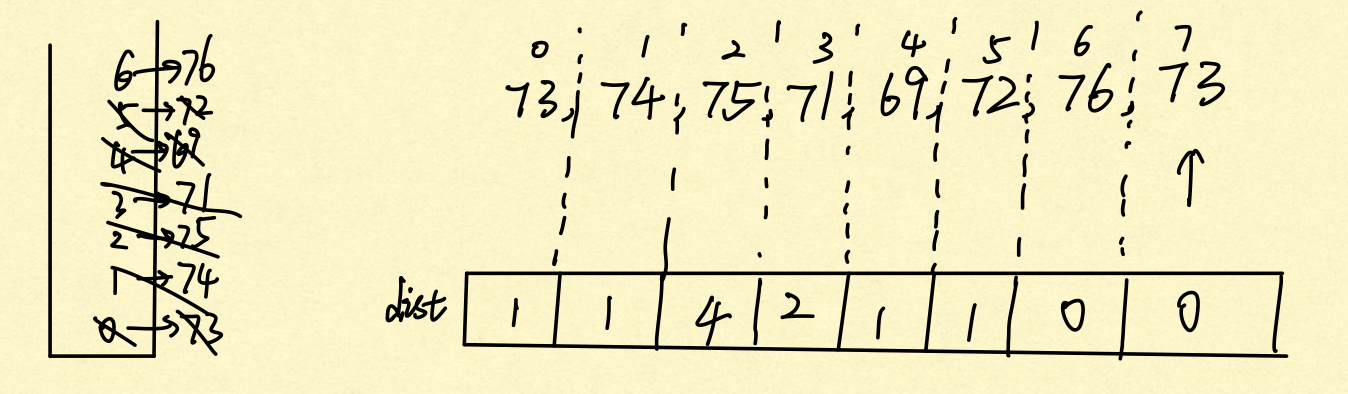 6→76
5→72
4→69
3→71
2→75
1→74
0→73
0 1 2 3 4 5 6 7
73, 74, 75, 71, 69, 72, 76, 73
↑
dist 1 1 4 2 1 1 0 0